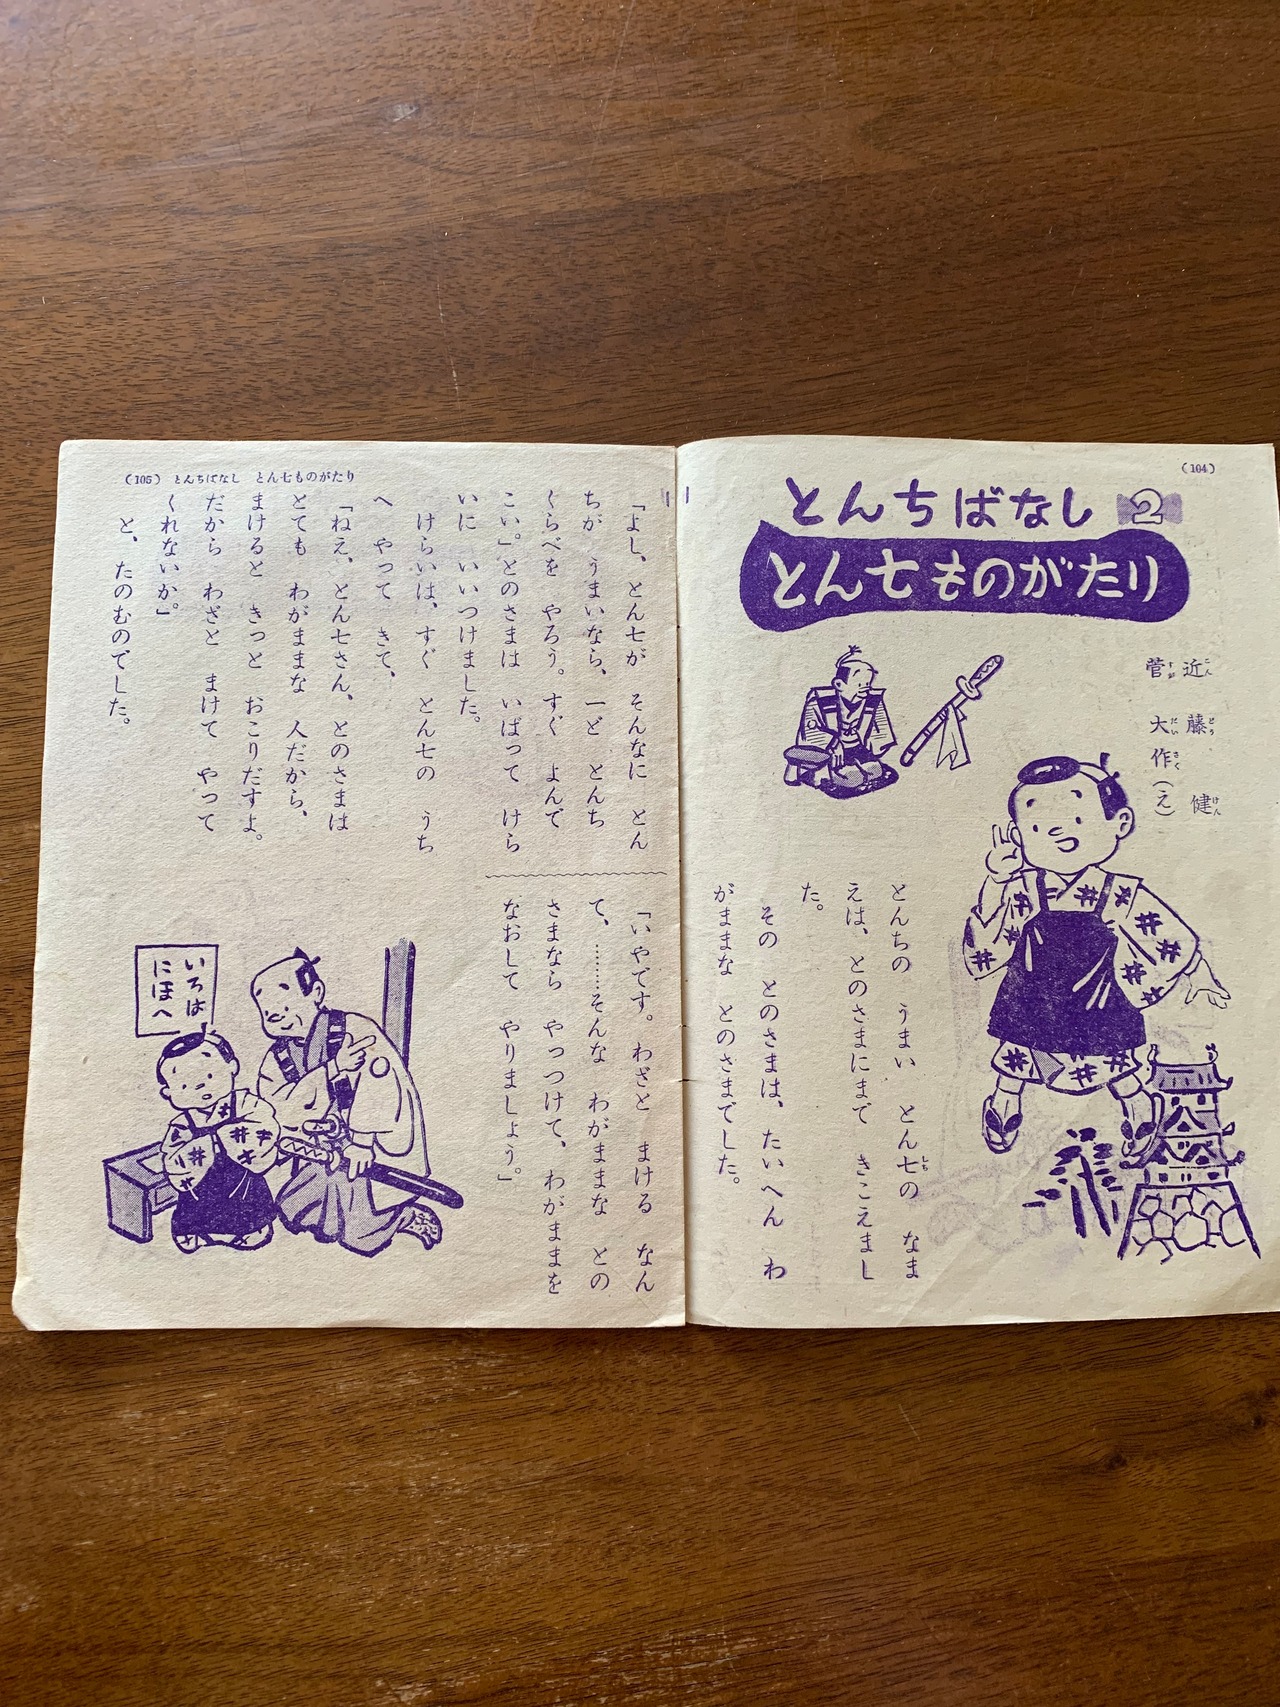 (104)
とんちばなし 2
とん七ものがたり
近藤 健
菅 大作(え)
とんちの うまい とん七の なま
えは、とのさまにまで きこえまし
た。
その とのさまは、たいへん わ
がままな とのさまでした。
(105) とんちばなし とん七ものがたり
「よし、とん七が そんなに とん
ちが うまいなら、一ど とんち
くらべを やろう。すぐ よんで
こい。」とのさまは いばって けら
いに いいつけました。
けらいは、すぐ とん七の うち
へ やって きて、
「ねえ、とん七さん、とのさまは
とても わがままな 人だから、
まけると きっと おこりだすよ。
だから わざと まけて やって
くれないか。」
と、たのむのでした。
「いやです。わざと まける なん
て、………そんな わがままな との
さまなら やっつけて、わがままを
なおして やりましょう。」
いろは
にほへ